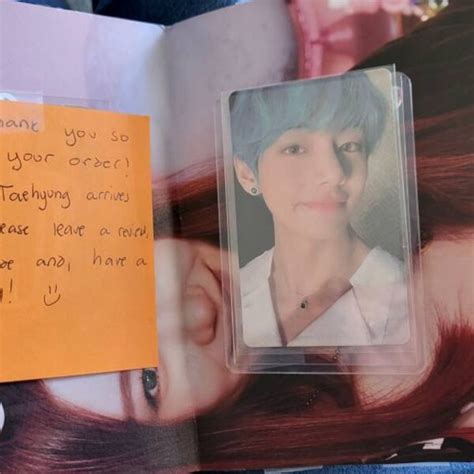 hank you so
your order!
Taehyung arrives
ease leave a review,
and, have a
!